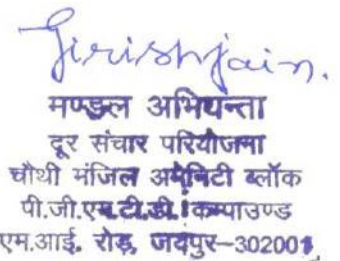 Girishjain.
मण्डल अभियन्ता
दूर संचार परियोजना
चौथी मंजिल अमेनिटी ब्लॉक
पी.जी.एम.टी.डी. कम्पाउण्ड
एम.आई. रोड़, जयपुर-302001